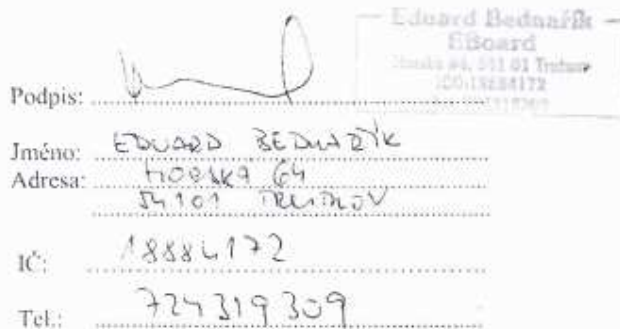 Eduard Bednařík
EBoard
541 01 Trutnov
IČO:18884172
Podpis:
Jméno: EDUARD BEDNAŘÍK
Adresa: HORSKÁ 64
54101 TRUTNOV
IČ: 18884172
Tel.: 724 319 309